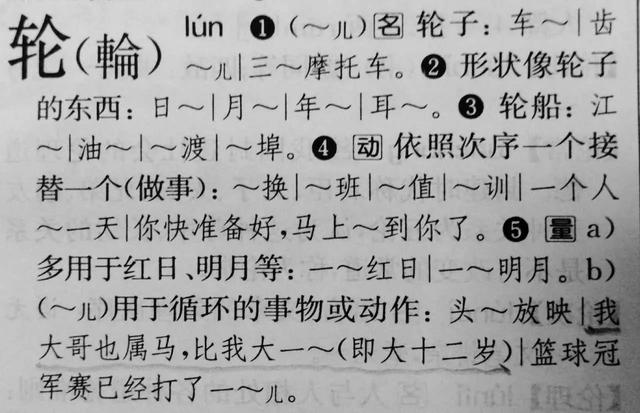 轮(輪) lún ❶(～儿)名 轮子：车～|齿
～儿|三～摩托车。❷ 形状像轮子
的东西：日～|月～|年～|耳～。❸ 轮船：江
～|油～|～渡|～埠。❹ 动 依照次序一个接
替一个(做事)：～换|～班|～值|～训|一个人
～一天|你快准备好,马上～到你了。❺ 量 a)
多用于红日、明月等：一～红日|一～明月。b)
(～儿)用于循环的事物或动作：头～放映|我
大哥也属马,比我大一～(即大十二岁)|篮球冠
军赛已经打了一～儿。